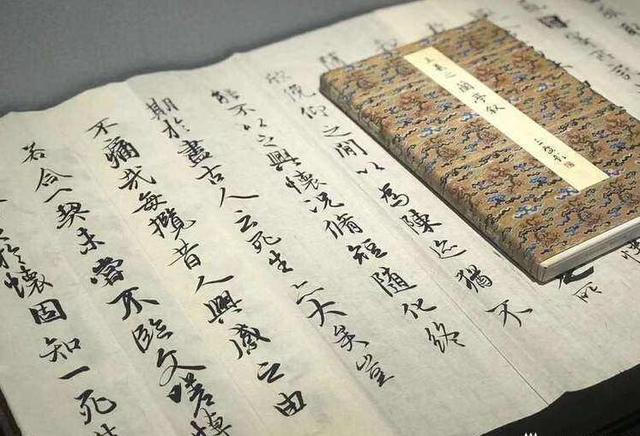 王羲之 蘭亭敘
欣俛仰之間以為陳迹猶不
能不以之興懷況脩短隨化終
期於盡古人云死生亦大矣豈
不痛哉每攬昔人興感之由
若合一契未嘗不臨文嗟悼
於懷固知一死